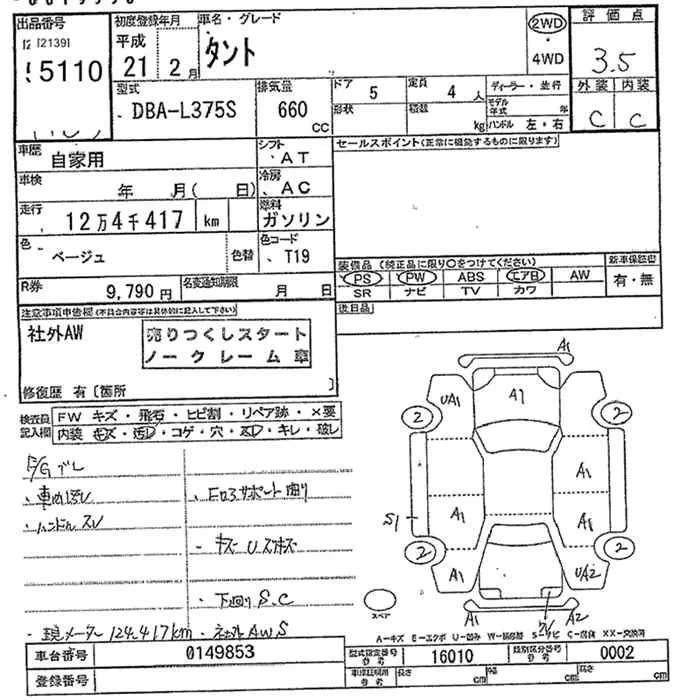 出品番号
初度登録年月
車名・グレード
2WD
評価点
[2139]
平成
15110
21 2月
タント
・4WD
3.5
型式
排気量
ドア
5
定員
4人
ディーラー・並行
外装
内装
DBA-L375S
660
CC
形状
積載
kg
モデル年式
年
ハンドル 左・右
C
C
車歴
自家用
シフト
AT
セールスポイント(正常に機能するものに限ります)
車検
年 月( 日)
冷房
AC
走行
12万4千417
km
燃料
ガソリン
色
ベージュ
色替
色コード
T19
装備品(純正品に限り○をつけてください)
新車保証書
PS PW ABS エアB AW
有・無
SR ナビ TV カワ
R券
9,790円
名変通知期限
月 日
後日品
注意事項申告欄(不具合内容等は具体的に記入して下さい)
社外AW
売りつくしスタート
ノークレーム車
修復歴 有〔箇所 〕
検査員記入欄
FW キズ・飛石・ヒビ割・リペア跡・×要
内装 キズ・汚れ・コゲ・穴・スレ・キレ・破レ
・ハンドルスレ
・下廻り S.C
・現メーター 124,417km
A1
UA1
A1
2
2
A1
S1
A1
A1
2
2
A1
UA2
スペア
A1
A2
A-キズ E-エクボ U-凹み W-補修跡 S-サビ C-腐食 XX-交換済
車台番号
0149853
型式指定番号
16010
類別区分番号
0002
登録番号
車庫証明用参考
長さ
cm
幅
cm
高さ
cm